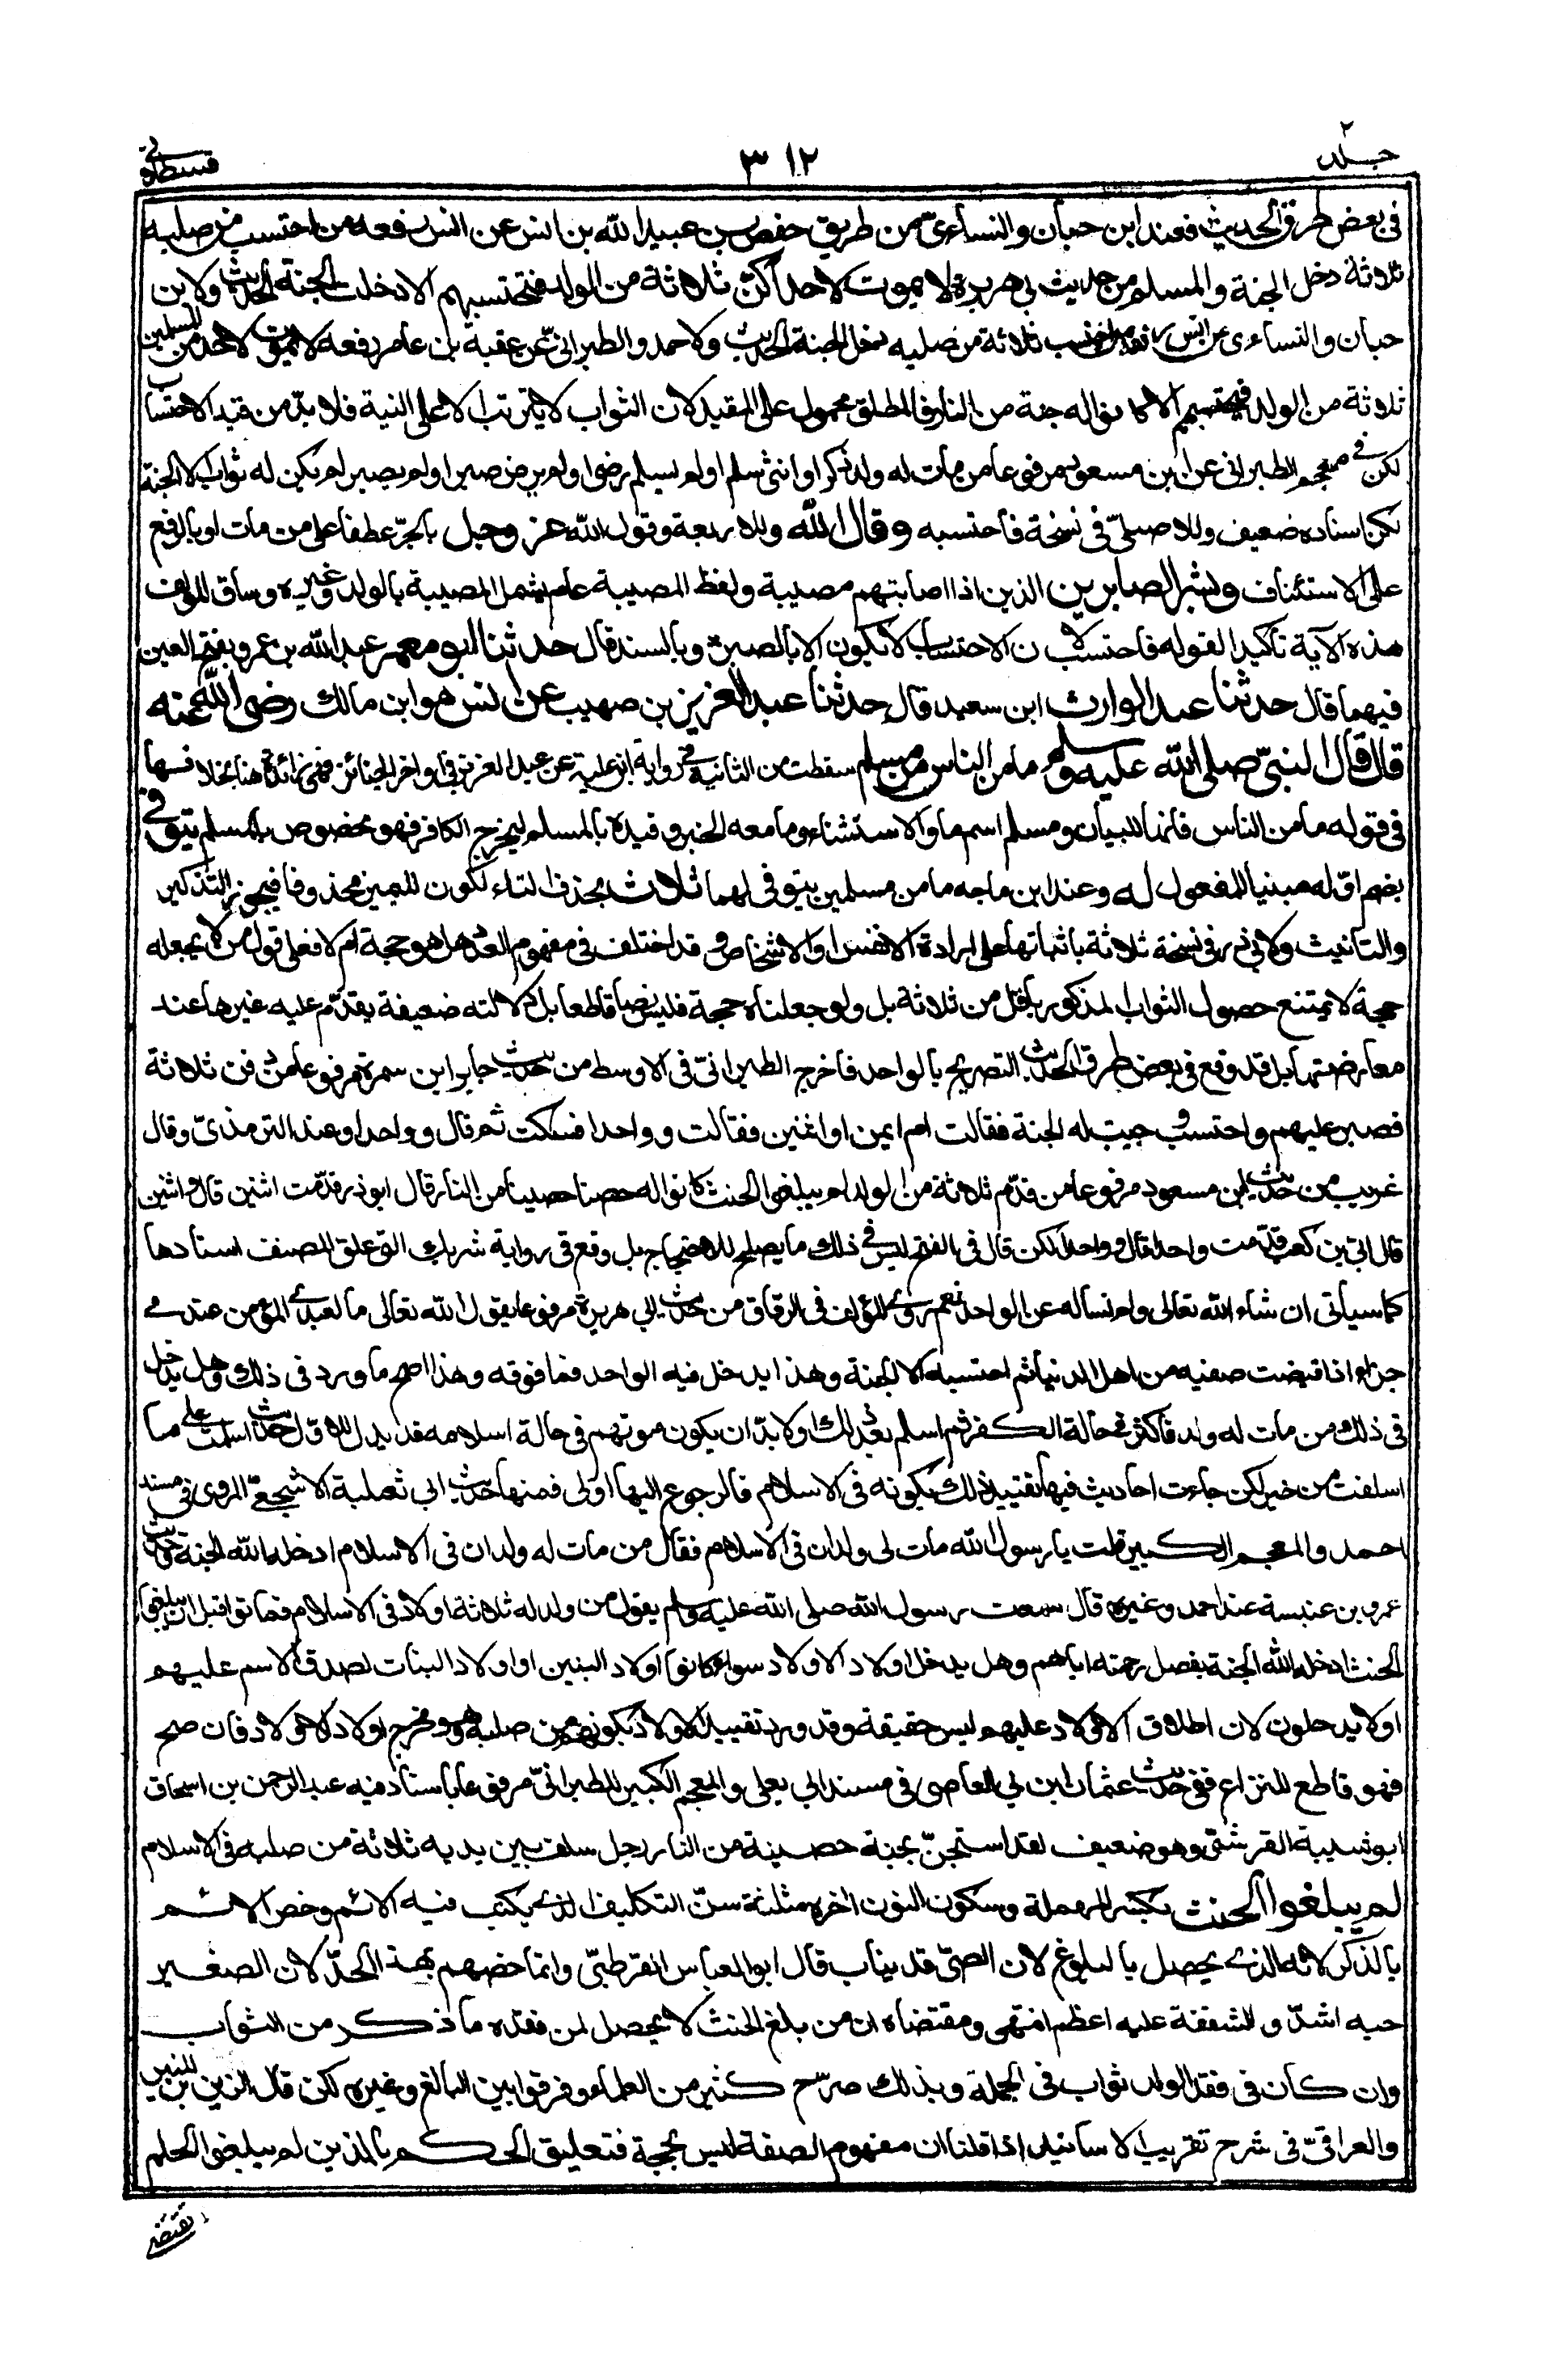 جلد ٢
٣١٢
قسطلانى
فى بعض طرق الحديث فعند ابن حبان والنساءىّ من طريق حفص بن عبيد الله بن انس عن انس رفعه من احتسب من صلبه
ثلاثة دخل الجنة والمسلم من حديث ابى هريرة لا يموت لاحداكنّ ثلاثة من الولد فتحتسبهم الا دخلت الجنة الحديث ولابن
حبان والنساءى عن انس رفعه من احتسب ثلاثة من صلبه دخل الجنة الحديث ولاحمد والطبرانىّ عن عقبة بن عامر رفعه لا يموت لاحد من المسلمين
ثلاثة من الولد فيحتسبهم الا كانوا له جنة من النار فالمطلق محمول على المقيد لان الثواب لا يترتب الا على النية فلا بدّ من قيد الاحتساب
لكن فى معجم الطبرانى عن ابن مسعود مرفوعا من مات له ولد ذكر او انثى سلم او لم يسلم رضى او لم يرض صبر او لم يصبر لم يكن له ثواب الا الجنة
لكن اسناده ضعيف وللاصيلىّ فى نسخة فاحتسبه وقال الله وللاربعة وقول الله عز وجل بالجرّ عطفا على من مات او بالرفع
على الاستئناف وبشر الصابرين الذين اذا اصابتهم مصيبة ولفظ المصيبة عام يشمل المصيبة بالولد وغيره وساق المؤلف
هذه الآية تأكيدا لقوله فاحتسب لان الاحتساب لا يكون الا بالصبر وبالسند قال حدثنا ابو معمر عبد الله بن عمرو بفتح العين
فيهما قال حدثنا عبد الوارث ابن سعيد قال حدثنا عبد العزيز بن صهيب عن انس هو ابن مالك رضى الله عنه
قال قال النبىّ صلى الله عليه وسلم ما من الناس من مسلم سقطت من الثانية فى رواية ابن علية عن عبد العزيز فى اواخر الجنائز فهى زائدة هنا بخلافها
فى قوله ما من الناس فانها للبيان ومسلم اسم ما والاستثناء وما معه الخبر وقيده بالمسلم ليخرج الكافر فهو مخصوص بالمسلم يتوفى
بضم اوّله مبنيا للمفعول له وعند ابن ماجه ما من مسلمين يتوفى لهما ثلاث بحذف التاء لكون المميز محذوفا فيجوز التذكير
والتانيث ولابى ذر فى نسخة ثلاثة باثباتها على ارادة الانفس او الاشخاص وقد اختلف فى مفهوم العدد هل هو حجة ام لا فعلى قول من لا يجعله
حجة لا يمتنع حصول الثواب المذكور باقل من ثلاثة بل ولو جعلناه حجة فليس نصا قاطعا بل دلالته ضعيفة يقدّم عليه غيرها عند
معارضتها بل قد وقع فى بعض طرق الحديث التصريح بالواحد فاخرج الطبرانىّ فى الاوسط من حديث جابر ابن سمرة مرفوعا من دفن ثلاثة
فصبر عليهم واحتسب وجبت له الجنة فقالت ام ايمن او اثنين فقالت وواحدا فسكت ثم قال وواحدا وعند الترمذىّ وقال
غريب من حديث ابن مسعود مرفوعا من قدّم ثلاثة من الولد لم يبلغوا الحنث كانوا له حصنا حصينا من النار قال ابو ذر قدّمت اثنين قال واثنين
قال ابىّ بن كعب قدّمت واحدا قال وواحدا لكن قال فى الفتح ليس فى ذلك ما يصلح للاحتجاج بل وقع فى رواية شريك التى علق المصنف اسنادها
كما سيأتى ان شاء الله تعالى ولم نساله عن الواحد نعم روى المؤلف فى الرقاق من حديث ابى هريرة مرفوعا يقول الله تعالى ما لعبدى المؤمن عندى
جزاء اذا قبضت صفيه من اهل الدنيا ثم احتسبه الا الجنة وهذا يدخل فيه الواحد فما فوقه وهذا اصح ما ورد فى ذلك وهل يدخل
فى ذلك من مات له ولد فاكثر فى حالة الكفر ثم اسلم بعد ذلك او لا بدّ ان يكون موتهم فى حالة اسلامه قد يدل للاوّل حديث اسلمت على ما
اسلفت من خير لكن جاءت احاديث فيها تقييد ذلك بكونه فى الاسلام فالرجوع اليها اولى فمنها حديث ابى ثعلبة الاشجعىّ المروى فى مسند
احمد والمعجم الكبير قلت يا رسول الله مات لى ولدان فى الاسلام فقال من مات له ولدان فى الاسلام ادخله الله الجنة وحديث
عمرو بن عنبسة عند احمد وغيره قال سمعت رسول الله صلى الله عليه وسلم يقول من ولد له ثلاثة اولاد فى الاسلام فماتوا قبل ان يبلغوا
الحنث ادخله الله الجنة بفضل رحمته اياهم وهل يدخل اولاد الاولاد سواء كانوا اولاد البنين او اولاد البنات لصدق الاسم عليهم
او لا يدخلون لان اطلاق الاولاد عليهم ليس حقيقة وقد ورد تقييد الاولاد بكونهم من صلبه وهو مخرج اولاد الاولاد فان صح
فهو قاطع للنزاع ففى حديث عثمان ابن ابى العاصى فى مسند ابى يعلى والمعجم الكبير للطبرانىّ مرفوعا باسناد فيه عبد الرحمن بن اسحاق
ابو شيبة القرشىّ وهو ضعيف لقد استجنّ بجنة حصينة من النار رجل سلف بين يديه ثلاثة من صلبه فى الاسلام
لم يبلغوا الحنث بكسر المهملة وسكون النون اخره مثلثة سنّ التكليف الذى يكتب فيه الاثم وخص الاثم
بالذكر لانه الذى يحصل بالبلوغ لان الصبىّ قد يثاب قال ابو العباس القرطبىّ وانما خصهم بهذا الحدّ لان الصغير
حبه اشدّ والشفقة عليه اعظم انتهى ومقتضاه ان من بلغ الحنث لا يحصل لمن فقده ما ذكر من الثواب
وان كان فى فقد الولد ثواب فى الجملة وبذلك صرّح كثير من العلماء وفرقوا بين البالغ وغيره لكن قال الزين بن المنير
والعراقىّ فى شرح تقريب الاسانيد اذا قلنا ان مفهوم الصفة ليس بحجة فتعليق الحكم بالذين لم يبلغوا الحلم
يقتضى